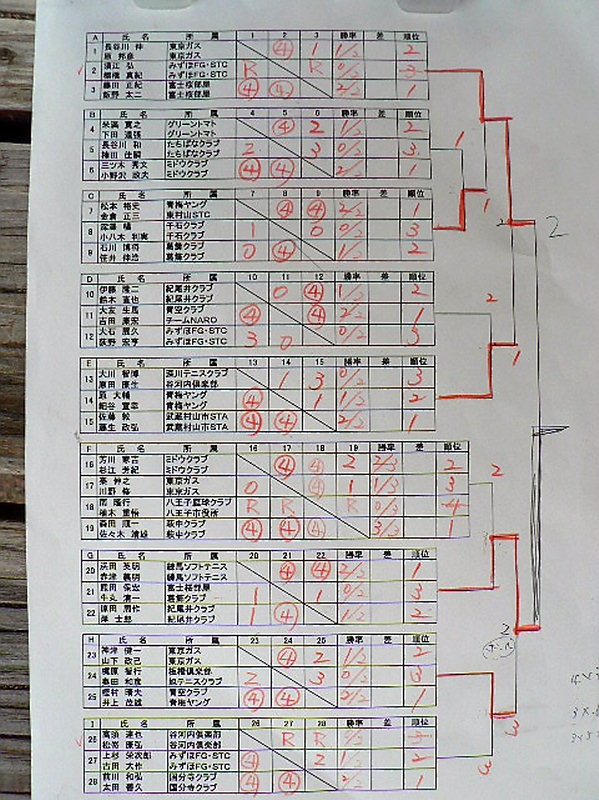 A 氏 名 所 属 1 2 3 勝率 差 順位
1 長谷川 伸 東京ガス ④ 1 1/2 2
原 邦彦 東京ガス
2 須江 弘 みずほFG・STC R R 0/2 3
棚橋 真紀 みずほFG・STC
3 藤田 正紀 富士桜部屋 ④ ④ 2/2 1
飯野 太二 富士桜部屋
B 氏 名 所 属 4 5 6 勝率 差 順位
4 米満 寛之 グリーントマト ④ 2 1/2 2
下田 グリーントマト
5 長谷川 和 たちばなクラブ 2 3 0/2 3
陳田 佳嗣 たちばなクラブ
6 三ツ木 秀文 ミドウクラブ ④ ④ 2/2 1
小野沢 政夫 ミドウクラブ
C 氏 名 所 属 7 8 9 勝率 差 順位
7 松本 裕史 青梅ヤング ④ ④ 2/2 1
金倉 正三 東村山STC
8 千石クラブ 1 0 0/2 3
小八木 利実 千石クラブ
9 石川 博将 葛飾クラブ 0 ④ 1/2 2
笹井 伸浩 葛飾クラブ
D 氏 名 所 属 10 11 12 勝率 差 順位
10 伊藤 隆二 紀尾井クラブ 0 ④ 1/2 2
鈴木 直也 紀尾井クラブ
11 大友 生馬 青空クラブ ④ ④ 2/2 1
吉田 康宏 チームNARO
12 大石 展久 みずほFG・STC 3 0 0/2 3
荻野 宏亨 みずほFG・STC
E 氏 名 所 属 13 14 15 勝率 差 順位
13 大川 智博 深川テニスクラブ 1 3 0/2 3
恩田 康生 谷河内倶楽部
14 原 大輔 青梅ヤング ④ 1 1/2 2
細谷 宣幸 青梅ヤング
15 佐藤 毅 武蔵村山市STA ④ ④ 2/2 1
藤生 政弘 武蔵村山市STA
F 氏 名 所 属 16 17 18 19 勝率 差 順位
16 芳川 家吉 ミドウクラブ ④ ④ 2 2/3 2
杉江 芳紀 ミドウクラブ
17 秦 伸之 東京ガス 0 ④ 1 1/3 3
川野 修 東京ガス
18 南 隆行 八王子籠球クラブ R R R 0/3 4
植木 重悟 八王子市役所
19 森田 順一 萩中クラブ ④ ④ ④ 3/3 1
佐々木 清雄 萩中クラブ
G 氏 名 所 属 20 21 22 勝率 差 順位
20 浜田 英明 練馬ソフトテニス ④ ④ 2/2 1
赤津 義明 練馬ソフトテニス
21 熊田 保宏 富士桜部屋 1 1 0/2 3
牛丸 清一 葛飾クラブ
22 原田 周作 紀尾井クラブ 1 ④ 1/2 2
岸 士郎 紀尾井クラブ
H 氏 名 所 属 23 24 25 勝率 差 順位
23 神津 健一 東京ガス ④ 2 1/2 2
山下 政己 東京ガス
24 梶原 智行 板橋倶楽部 2 3 0/2 3
奥田 和彦 狛テニスクラブ
25 樫村 清夫 青空クラブ ④ ④ 2/2 1
井上 茂雄 青梅ヤング
I 氏 名 所 属 26 27 28 勝率 差 順位
26 高須 達也 谷河内倶楽部 R R 0/2 3
松嵜 康弘 谷河内倶楽部
27 上杉 栄次郎 みずほFG・STC ④ 2 1/2 2
古田 大作 みずほFG・STC
28 前川 和弘 国分寺クラブ ④ ④ 2/2 1
太田 善久 国分寺クラブ
1
1
2
2
2
1
2
2
3
3